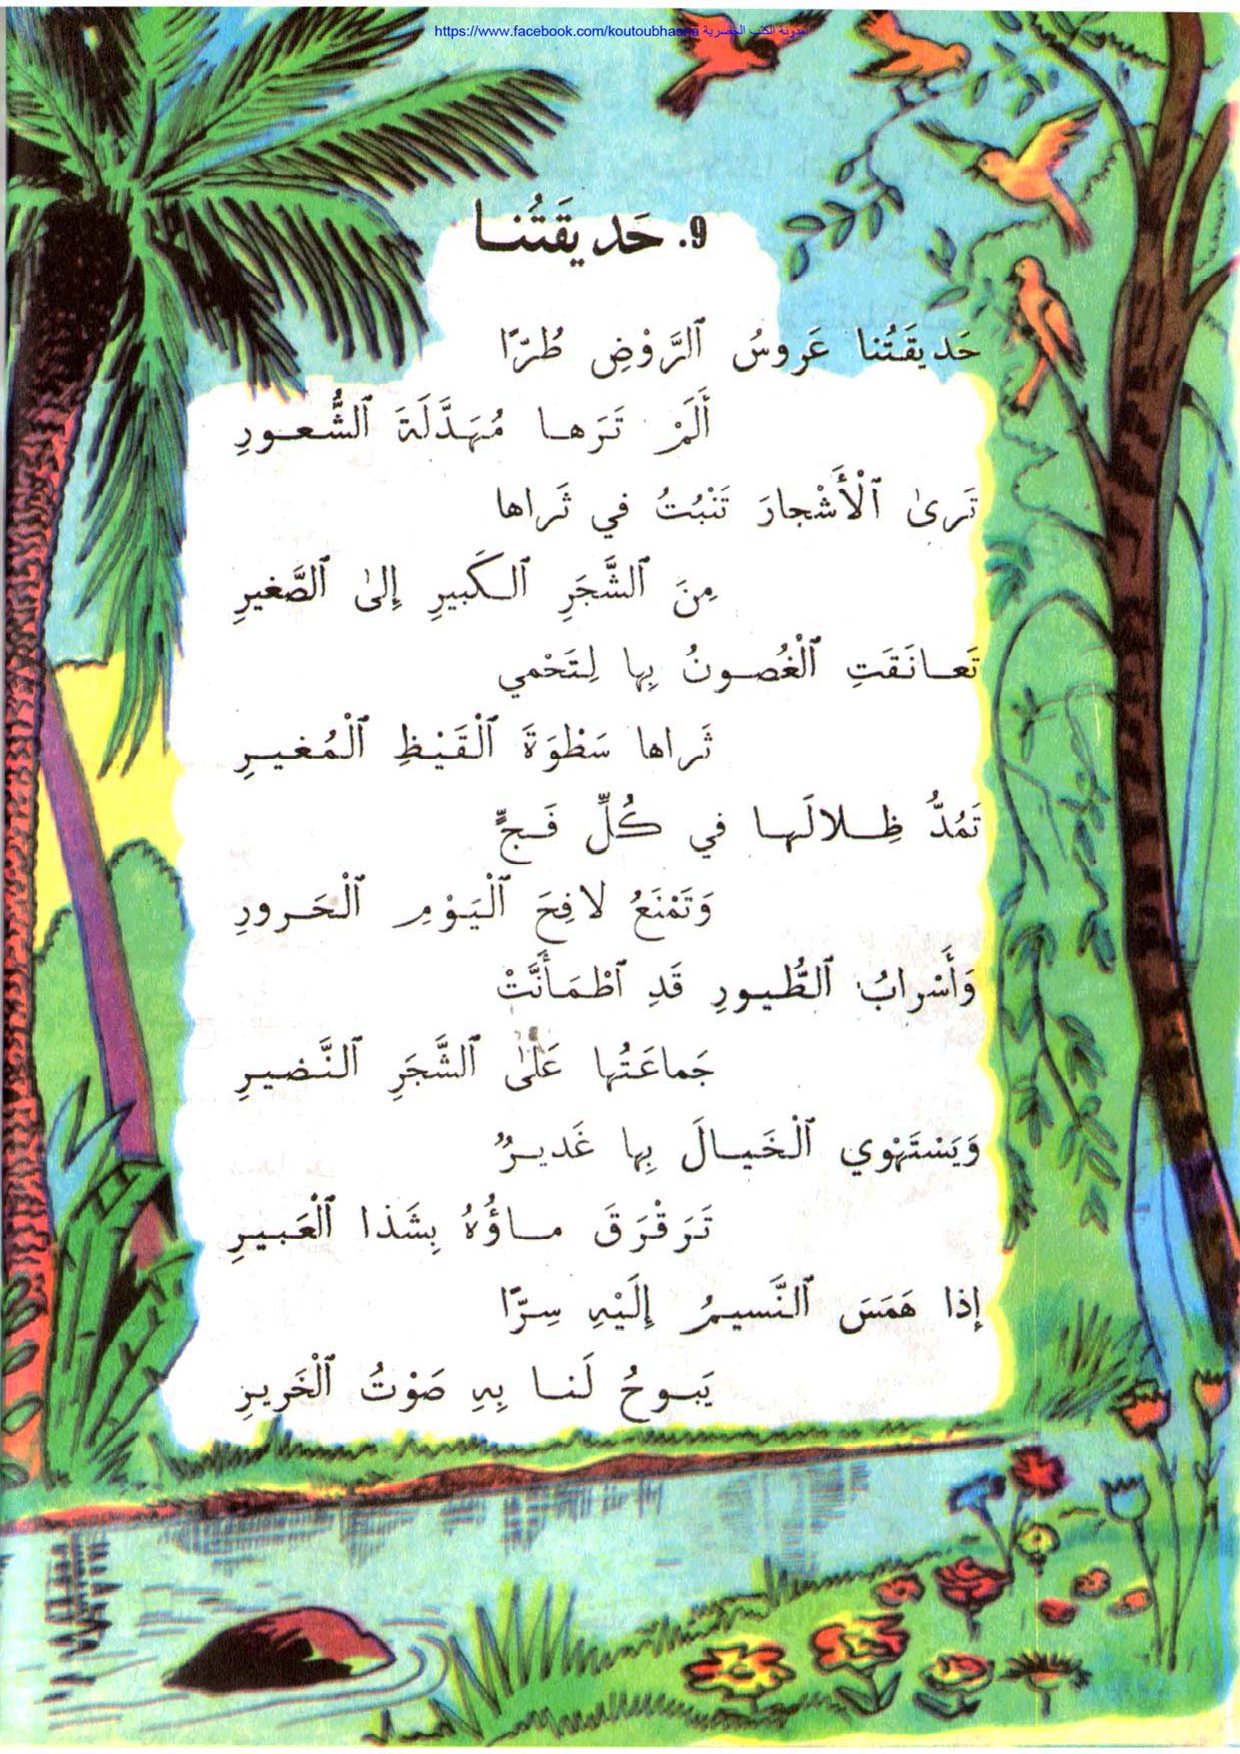 https://www.facebook.com/koutoubhasna مدونة الكتب الحصرية
9. حَديقَتُنا
حَديقَتُنا عَروسُ ٱلرَّوْضِ طُرًّا
أَلَمْ تَرَها مُهَدَّلَةَ ٱلشُّعورِ
تَرىٰ ٱلْأَشْجارَ تَنْبُتُ في ثَراها
مِنَ ٱلشَّجَرِ ٱلكَبيرِ إِلىٰ ٱلصَّغيرِ
تَعانَقَتِ ٱلْغُصونُ بِها لِتَحْمي
ثَراها سَطْوَةَ ٱلْقَيْظِ ٱلْمُغيرِ
تَمُدُّ ظِلالَها في كُلِّ فَجٍّ
وَتَمْنَعُ لافِحَ ٱلْيَوْمِ ٱلْحَرورِ
وَأَسْرابُ ٱلطُّيورِ قَدِ ٱطْمَأَنَّتْ
جَماعَتُها عَلَىٰ ٱلشَّجَرِ ٱلنَّضيرِ
وَيَسْتَهْوي ٱلْخَيالَ بِها غَديرٌ
تَرَقْرَقَ ماؤُهُ بِشَذا ٱلْعَبيرِ
إِذا هَمَسَ ٱلنَّسيمُ إِلَيْهِ سِرًّا
يَبوحُ لَنا بِهِ صَوْتُ ٱلْخَريرِ